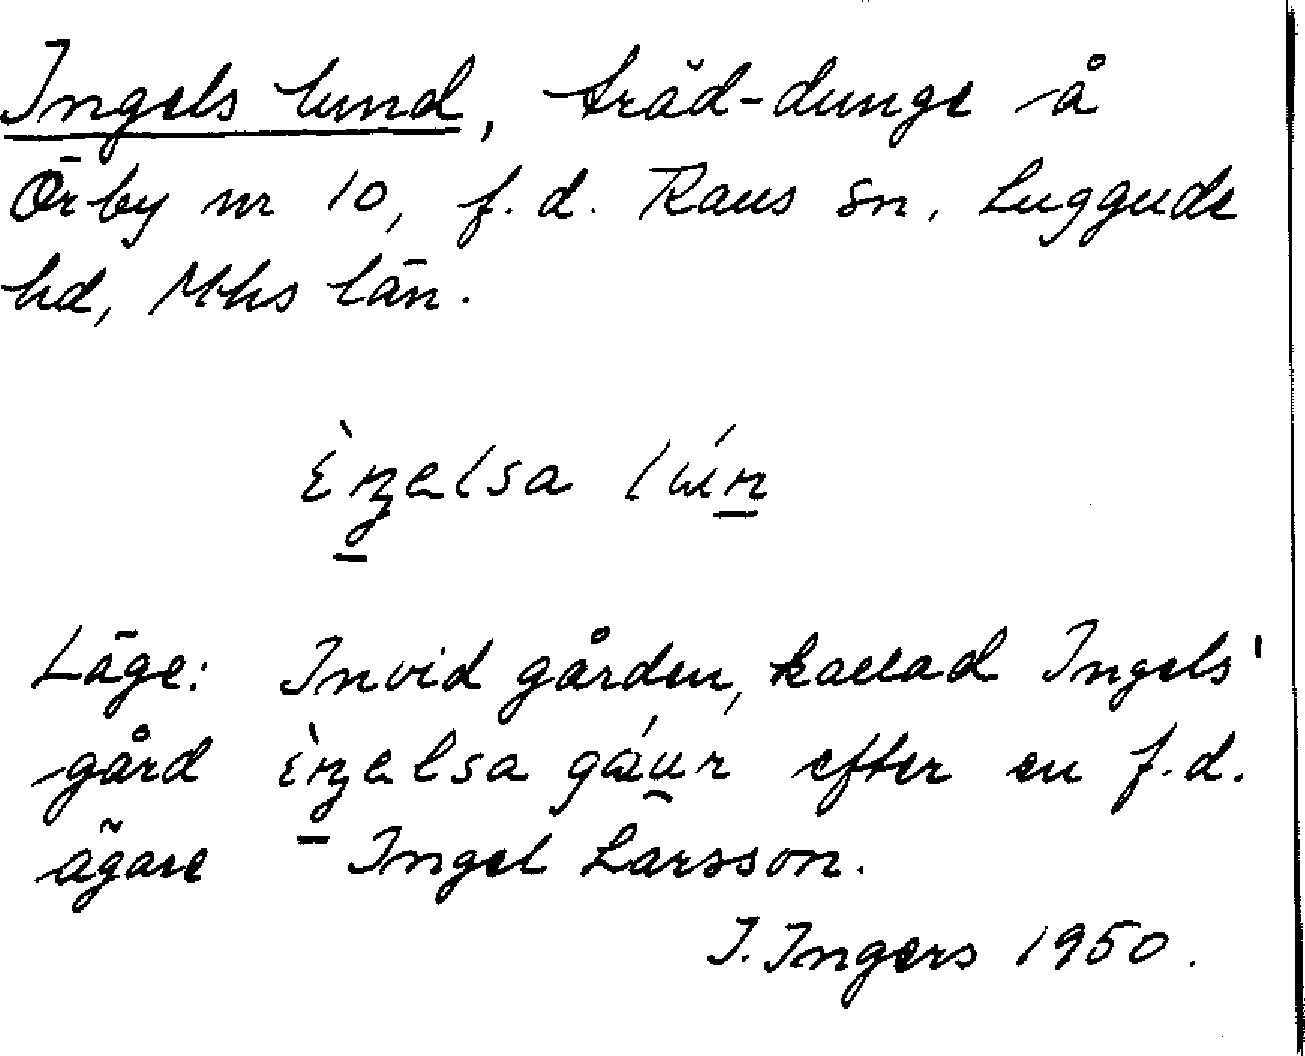 Ingels lund, träd-dunge å
Örby nr 10, f.d. Raus sn, Luggude
hd, Mhs län.
ìŋelsa lún
Läge: Invid gården, kallad Ingels'
gård ìŋelsa gáur efter en f.d.
ägare Ingel Larsson.
I. Ingers 1950.